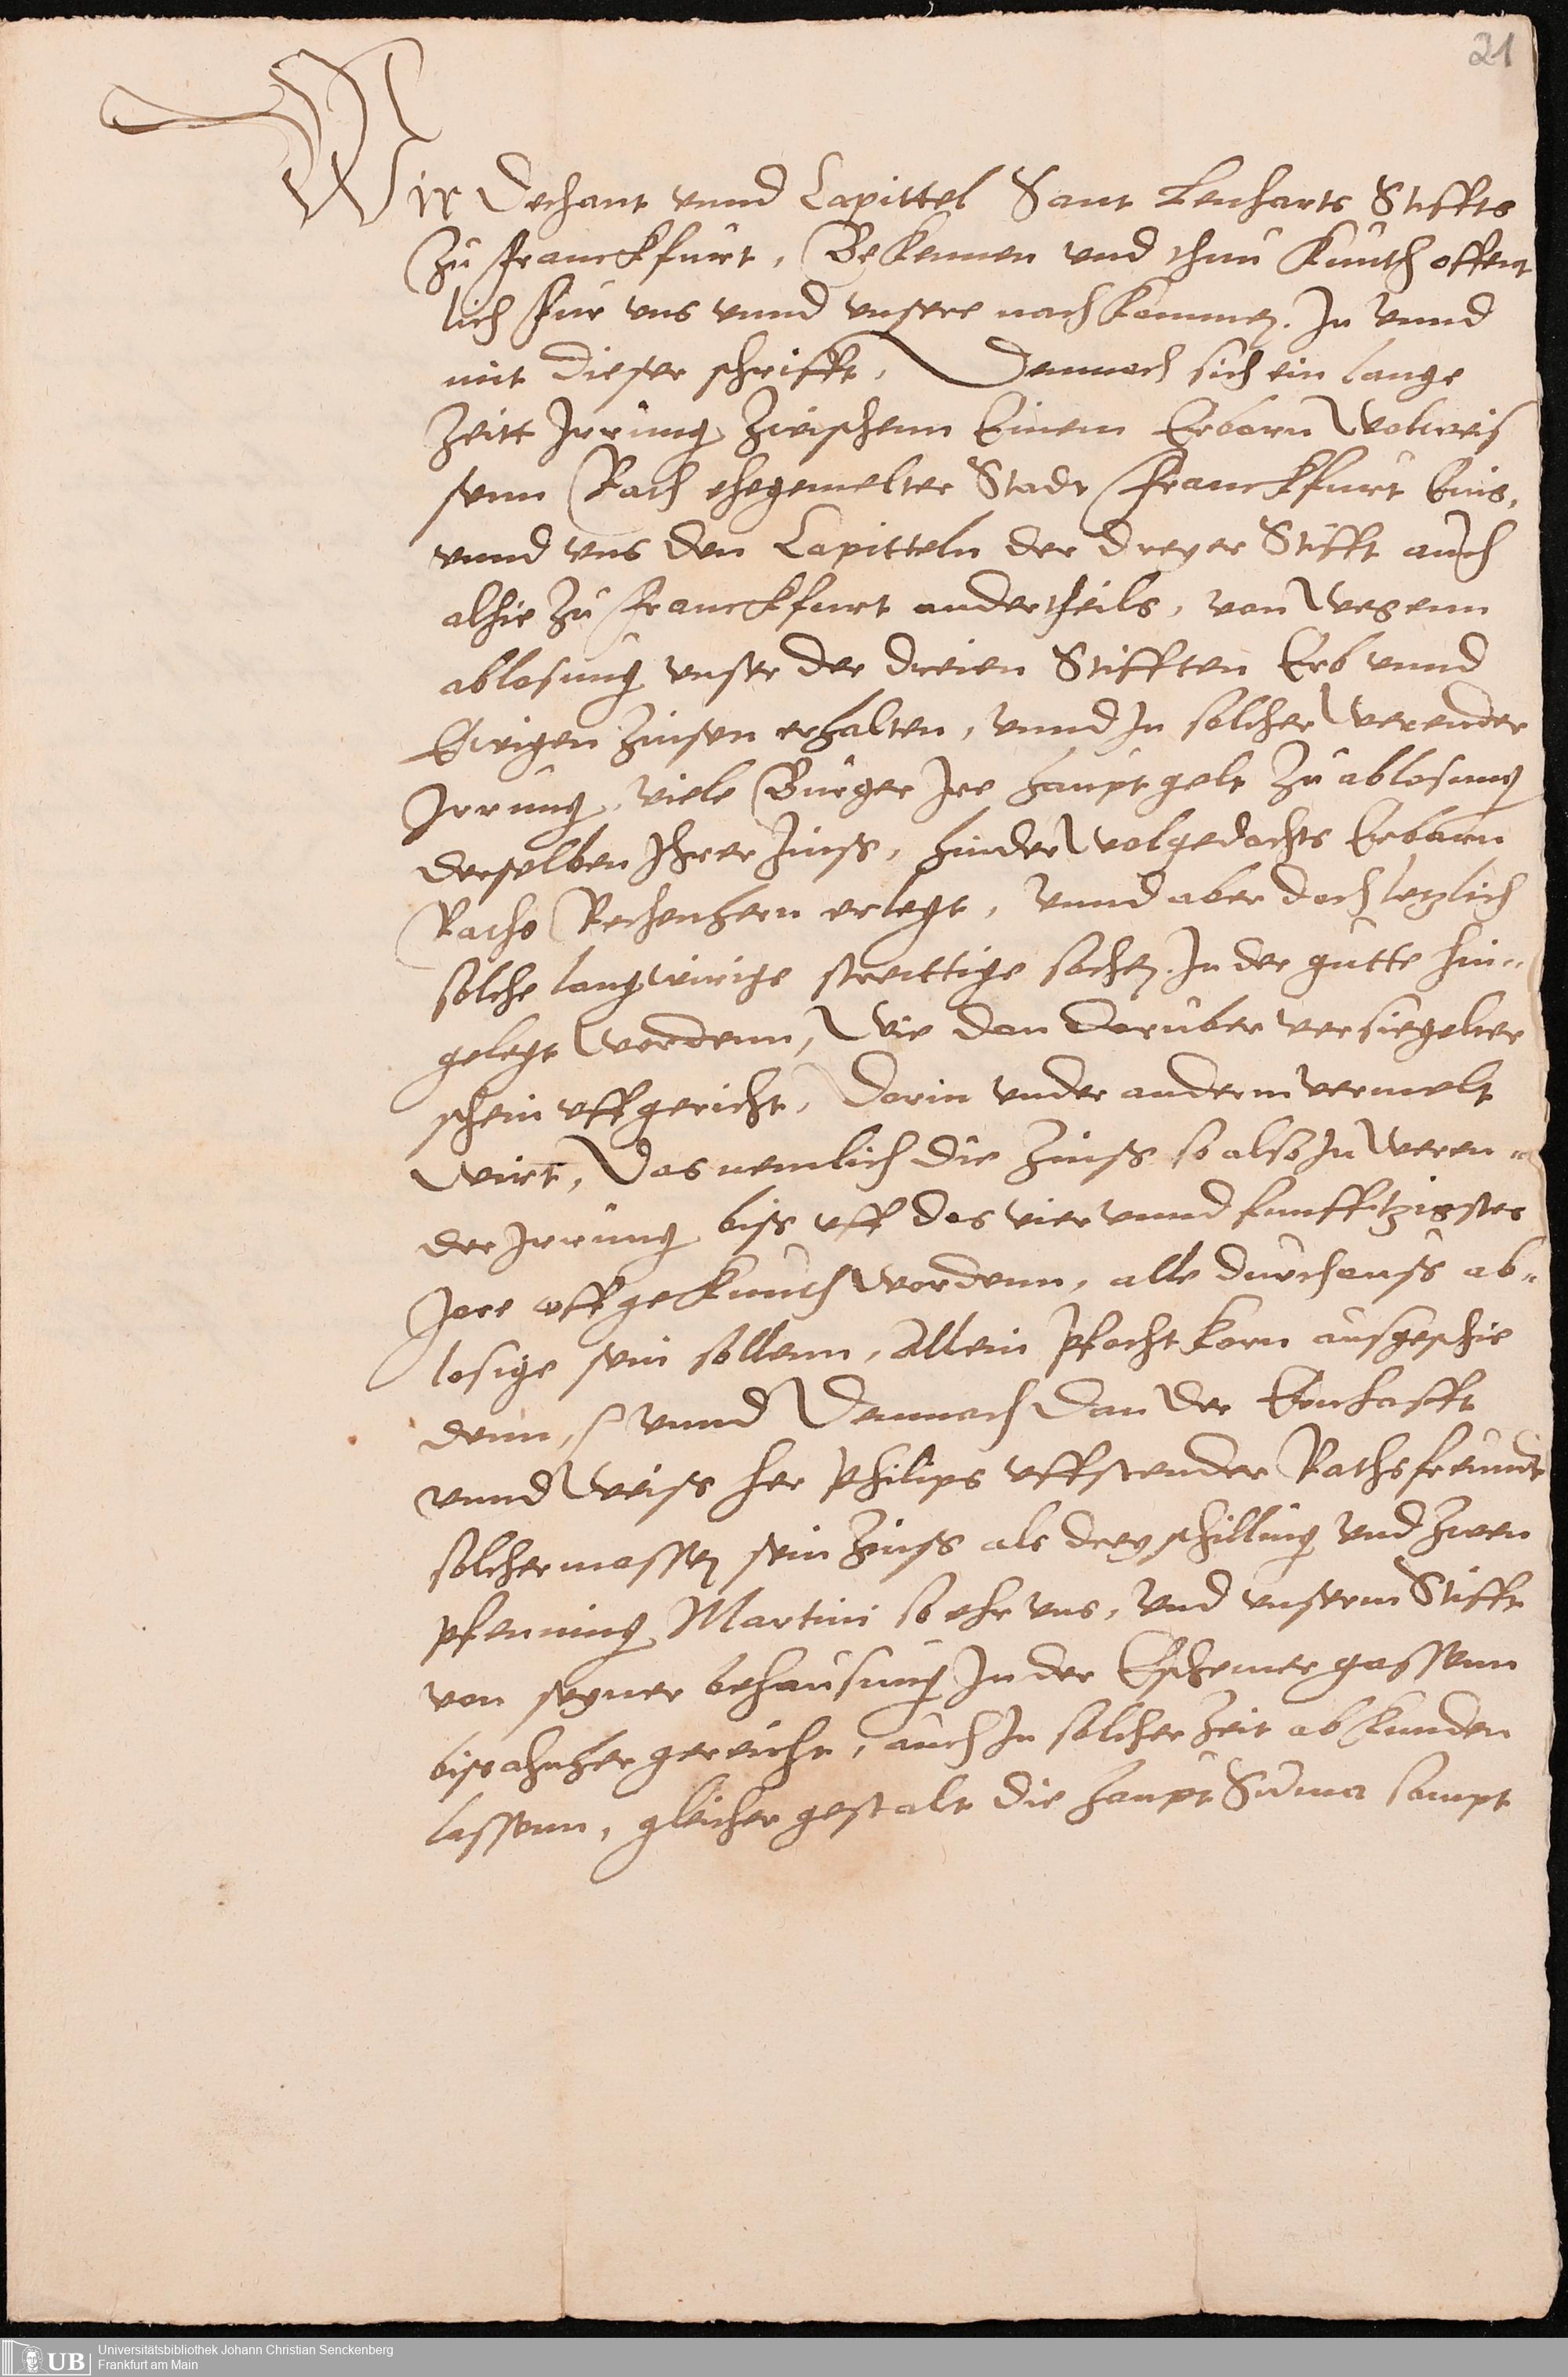 21
Wir Dechant vnnd Capittel Sant Lenharts Stiffts
zu Franckfurt, Bekennen vnd thun kunth offent
lich fur vns vnnd vnsere nachkommen. In vnnd
mit dieser schrifft, Demnach sich ein lange
Zeitt Irrung zwischenn Einem Erbarn wolweis
senn Rath ehegemelter Stadt Franckfurt Eins,
vnnd vns den Capitteln der dreyer Stifft auch
alhie zu Franckfurt andertheils, von wegenn
ablosung vnser der dreien Stifften Erb vnnd
Ewigen Zinsen erhalten, vnnd In solcher werender
Irrung, viele Burger Ire hauptgelt zu ablosung
derselben Ihrer Zinss, hinder wolgedachts Erbarn
Raths Rechenhern erlegt, vnnd aber doch letzlich
solche langwirige streittige sachen. In der gutte hin-
gelegt wordenn, Wie dan daruber versiegelter
schein uffgericht, Darin vnder anderm vermelt
wirt, Das nemlich die Zinss so also In weren-
der Irrung biss uff das vier vnnd funffitzigstes
Jare uffgekunth wordenn, alle durchauss ab-
losige sein sollenn, Allein pfacht korn ausgeschie
denn, vnnd Demnach dan der Ernhafft
vnnd weiss her Philips uffstender Rathsfreundt
solchermassen sein Zinss als drey schilling vnd zwen
pfenning Martini so ehr vns, vnd vnserm Stifft
von seyner behausung In der Eschemer gassenn
biss anher gereicht, auch In solcher Zeit abkunden
lassenn, gleicher gestalt die haupt Suma sampt
UB Universitätsbibliothek Johann Christian Senckenberg
Frankfurt am Main